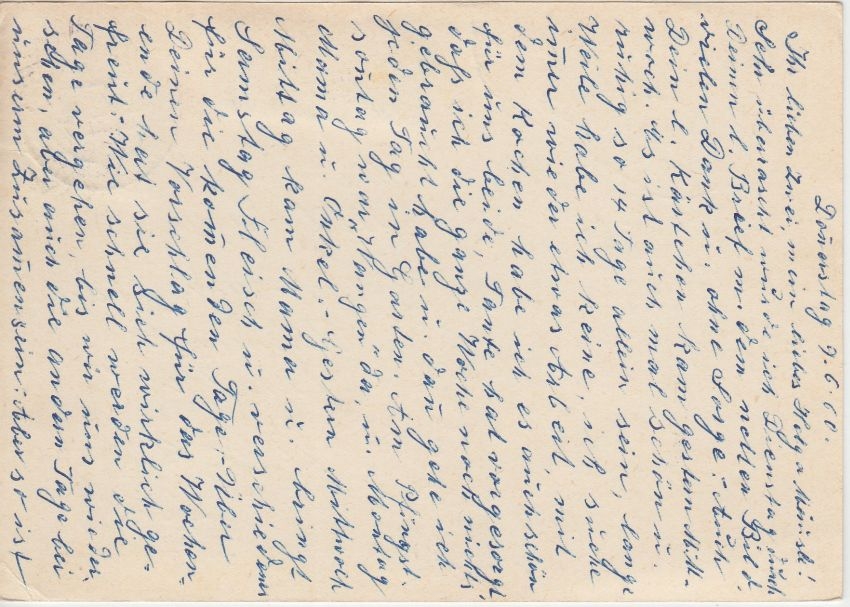 Donerstag 9.6.60.
Ihr lieben Zwei, mein liebes Helga
Sehr überascht wurde ich Dienstag durch
Deinen l. Brief m. dem netten Bild.
vielen Dank u. ohne Sorge. Auch
Dein l. Kärtchen kam gestern Mitt-
woch. Es ist auch mal schön u.
ruhig so 14 Tage allein sein, lange
Weile habe ich keine, ich suche
imer wieder etwas Arbeit, mit
dem Kochen habe ich es auch schön
für uns beide, Tante hat vorgesorgt,
daß ich die ganze Woche noch nichts
gebraucht habe u. dan gehe ich
jeden Tag in Garten. Am Pfingst-
sontag war da, u. Montag
Mama u. Onkel.- Gestern Mittwoch
Mittag kam Mama u. bringt
Samstag Fleisch u. verschiedenes
für die komenden Tage.- Über
Deinen Vorschlag für das Wochen-
ende hat sie sich wirklich ge-
freut.- Wie schnell werden die
Tage vergehen, bis wir uns wieder
sehen, aber auch die andern Tage bei
unserem Zusamensein. Aber so ist